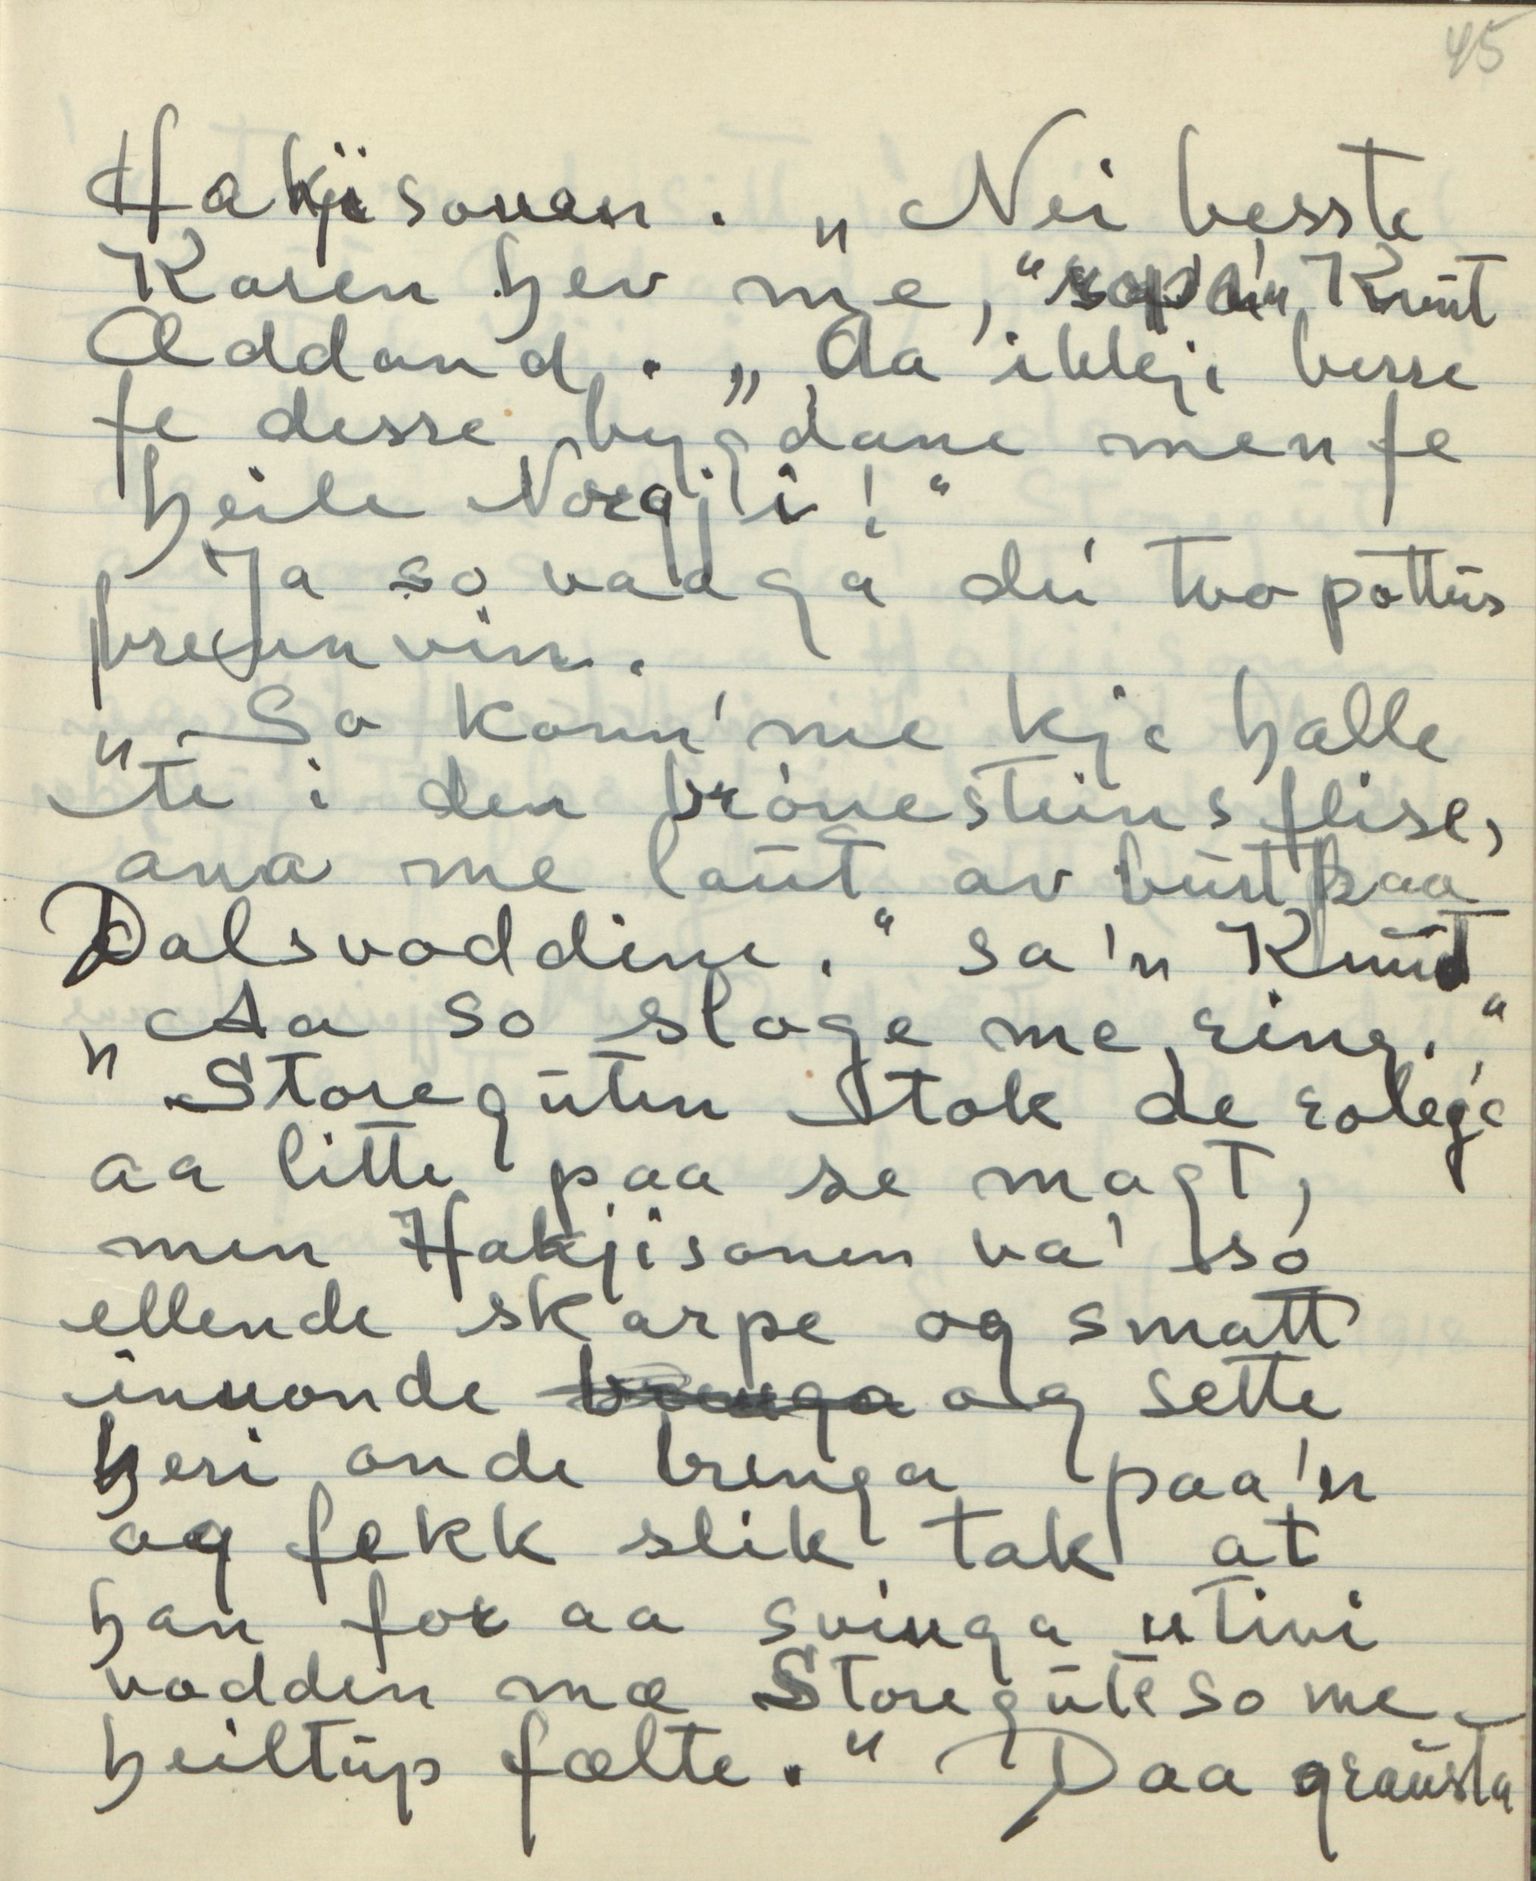 45
Hakjisonen. „Nei besste
Karen hev me,“ sa'n Knut
Addand. „Aa ikkji berre
fe desse bygdane men fe
heile Norgji!“
Ja so vaaga dei' tvo pottur
brennvin.
„So konn' me kje halle
te i den krónesteinsflise,
ana me laut av burt paa
Dalsvoddine.“ sa'n Knut
„Aa so sloge me ring.“
„Storeguten tok de rolegé
aa litte paa se magt,
men Hakjisonen va' so
ellende skarpe og smatt
innonde og sette
heri onde bringa paa'n
og fekk slik tak at
han for aa svinga utivi
vodden mæ Storegute so me
heiltup fælte.“ Daa grausta